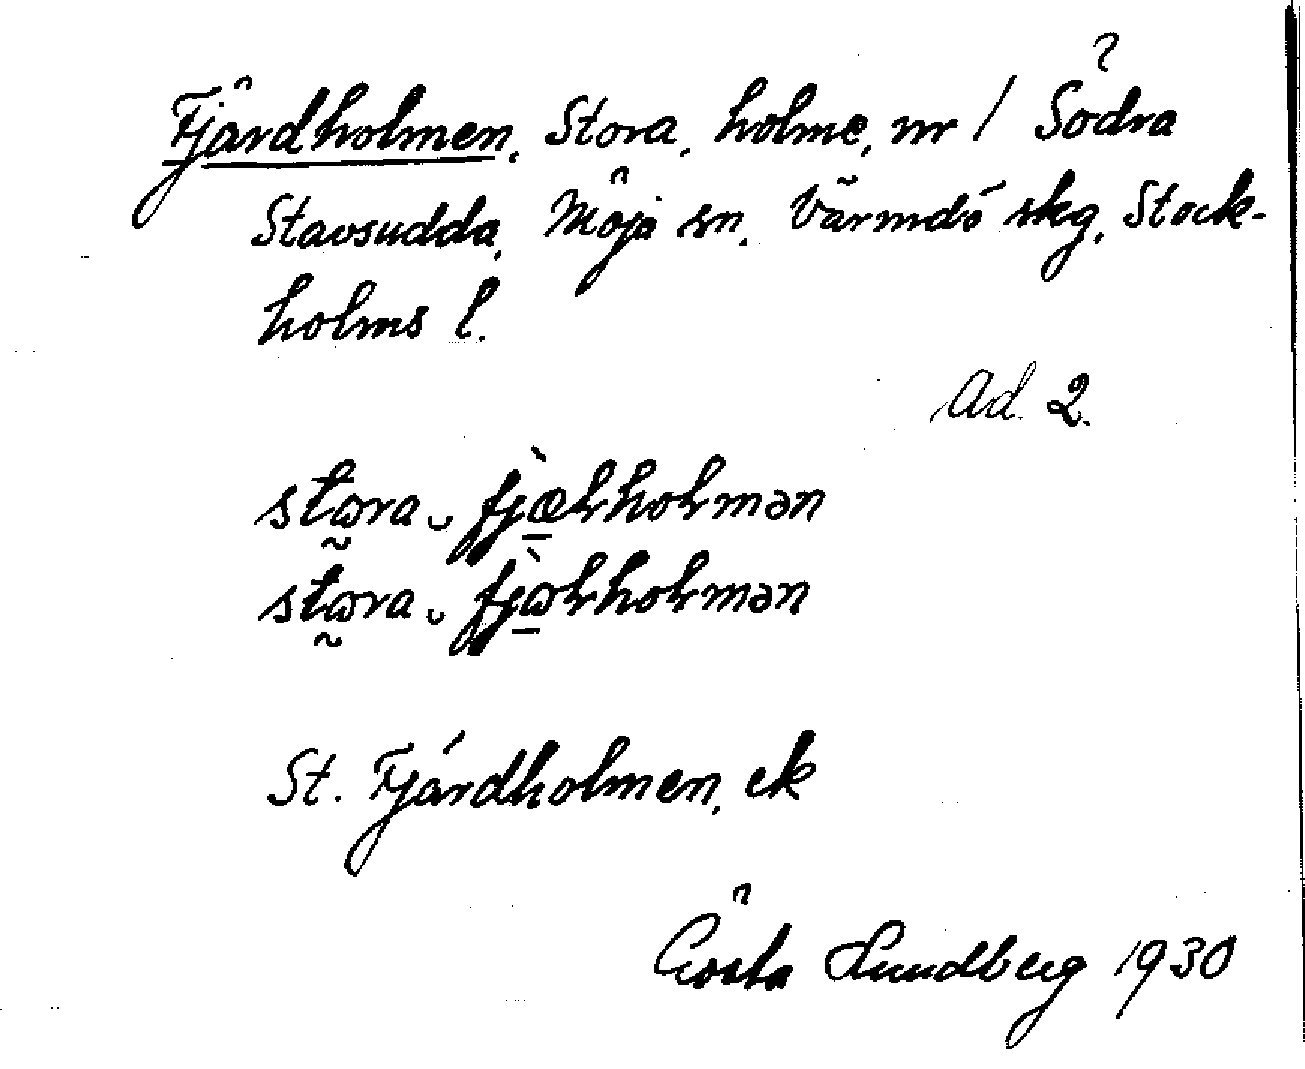 Fjärdholmen, Stora, holme, nr 1 Södra
Stavsudda, Möja sn, Värmdö skg, Stock-
holms l.
Ad. 2.
stɷ̰ra ᵕ fjæ̠̀ɽhoɽmən
stɷ̰ra ᵕ fjɷ̠̀ɽhoɽmən
St. Fjärdholmen, ek
Gösta Lundberg 1930